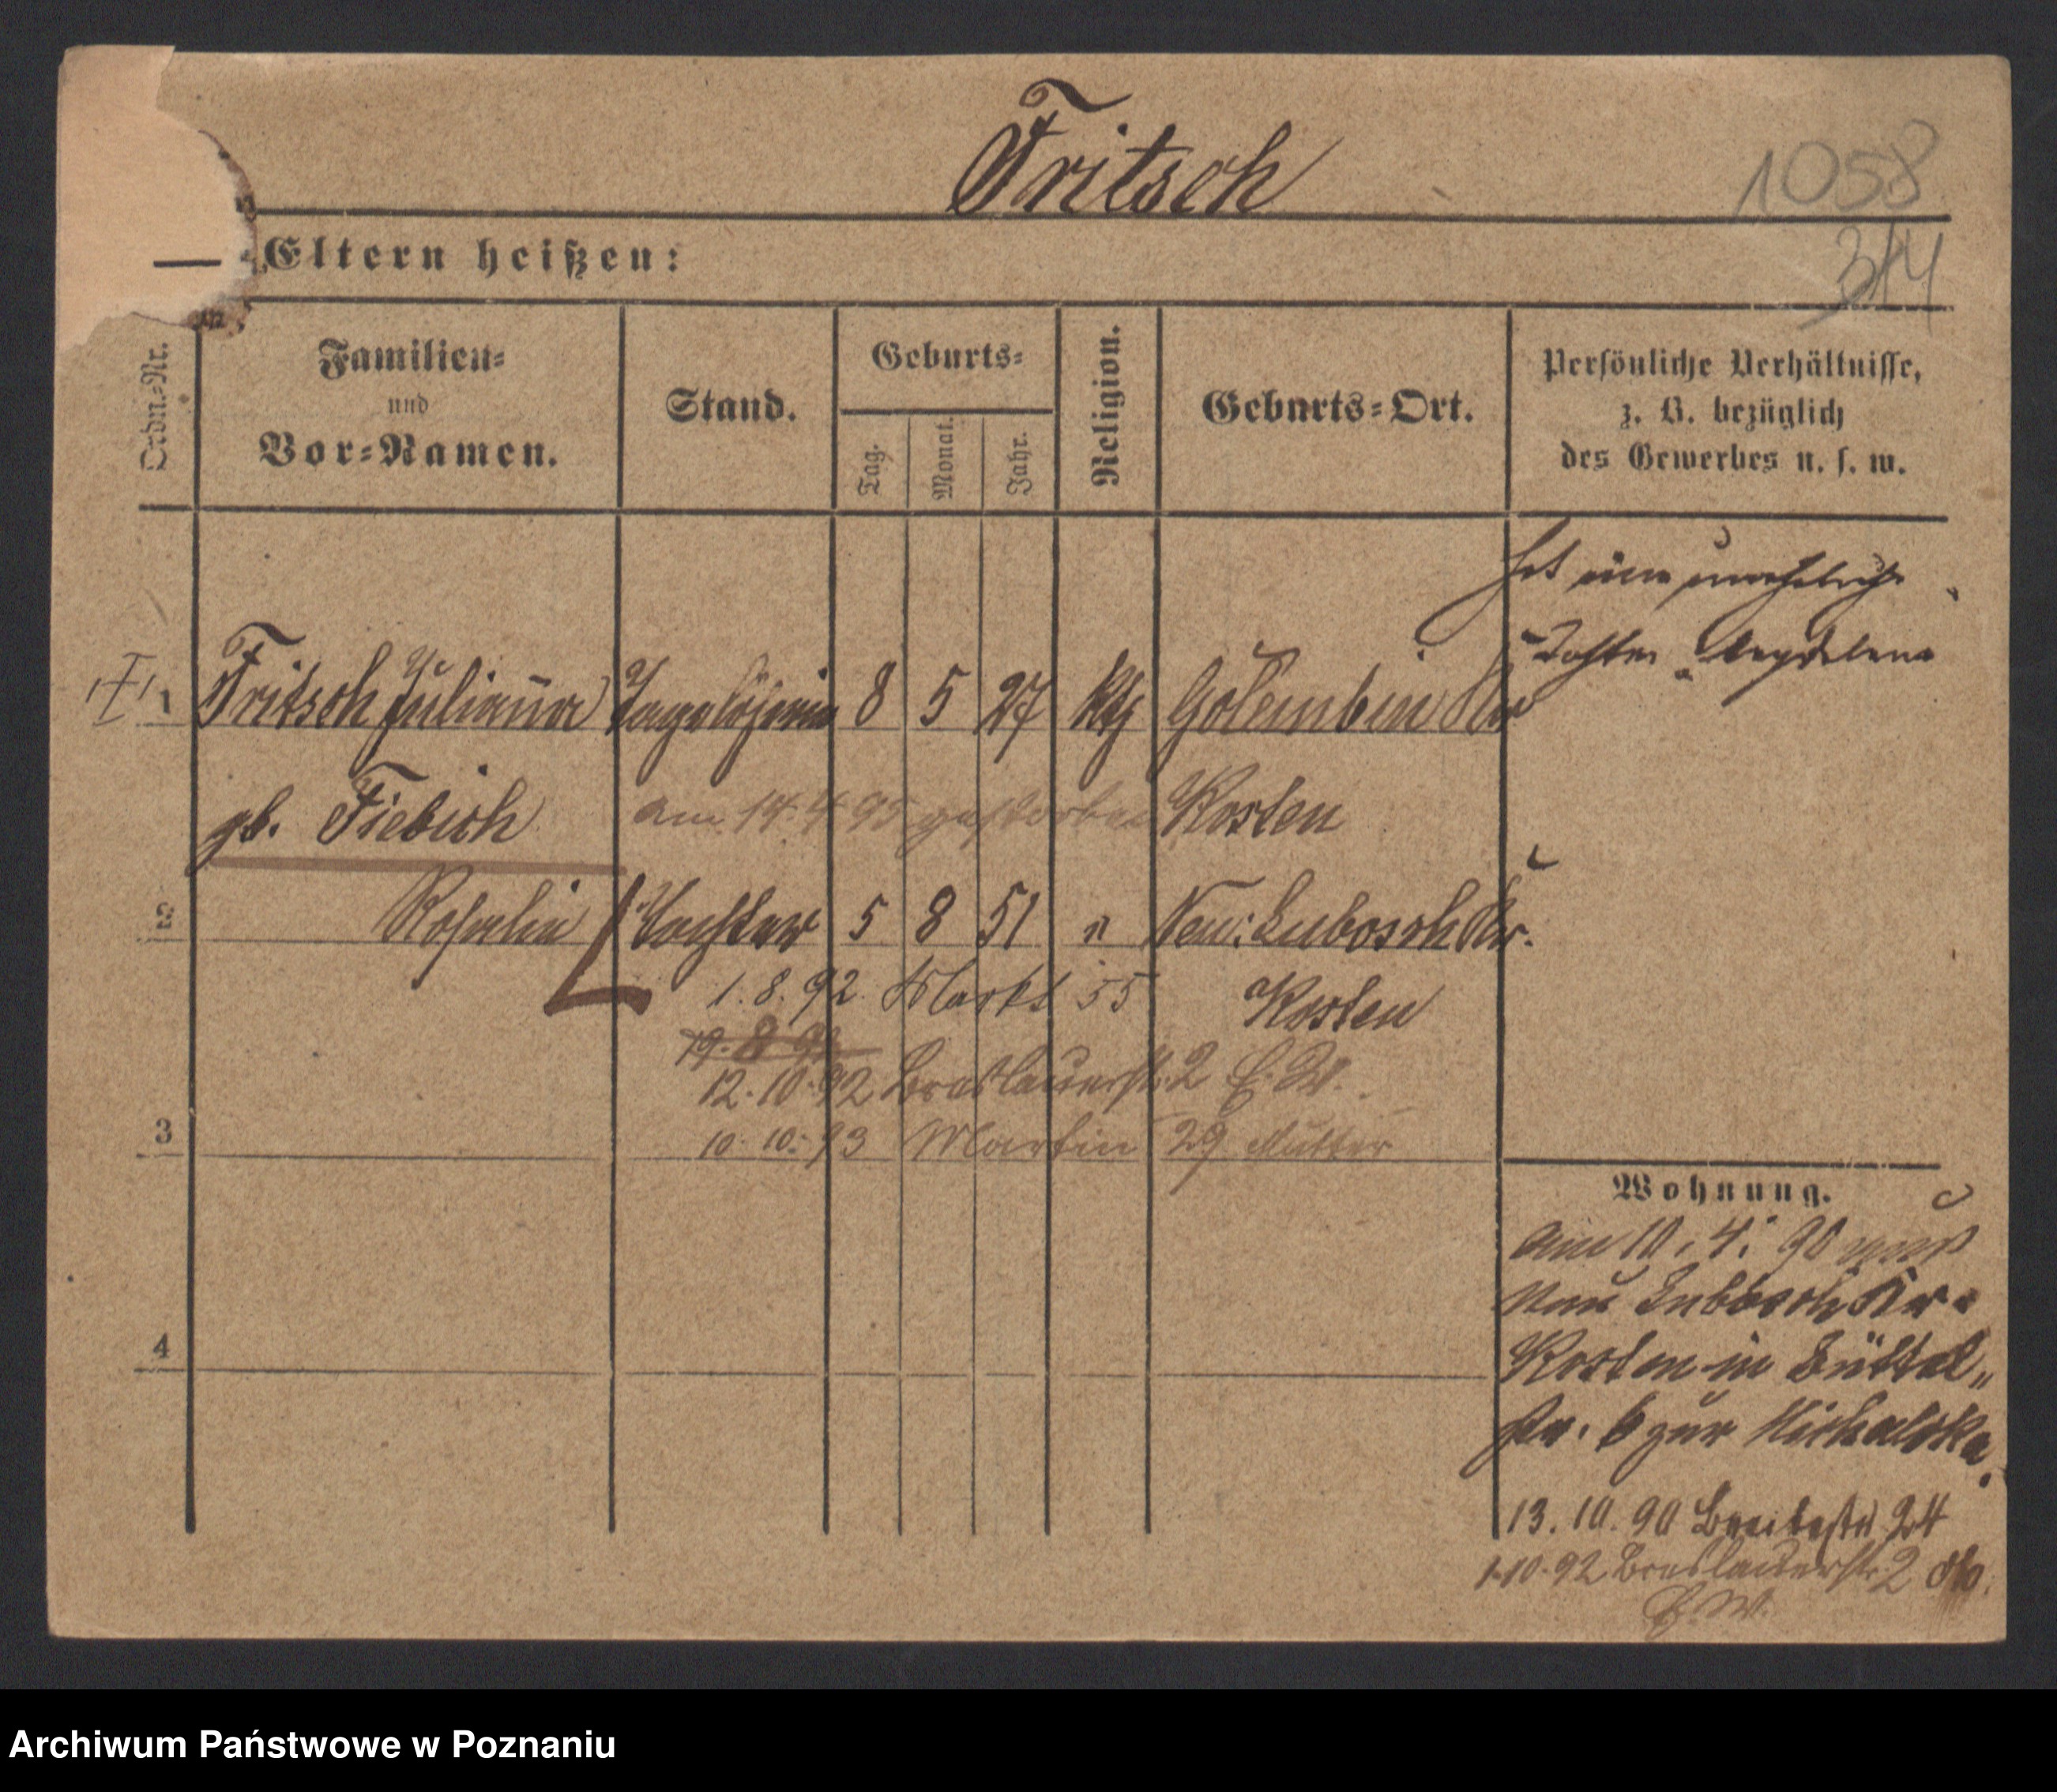 Fritsch
1058
314
Eltern heißen:
Ordn.-Nr.
Familien-
und
Vor-Namen.
Stand.
Geburts-
Tag.
Monat.
Jahr.
Religion.
Geburts-Ort.
Persönliche Verhältnisse,
z. B. bezüglich
des Gewerbes u. s. w.
hat eine uneheliche
Tochter Magdalena
1 Fritsch Julianna Tagelöhnerin 8 5 27 kth Golembin Kr
gb. Fiebich am 14. 4 95 gestorben Kosten
2 Rosalia Tochter 5 8 51 " Neu: Lubosch Kr.
1. 8. 92. Markt 55 Kosten
19. 8 92
12. 10. 92 Breslauerstr. 2 E. W.
3 10. 10. 93 Martin 29 Mutter
4
Wohnung.
am 10. 4. 90 aus
Neu Lubosch Kr.
Kosten in Büttel„
str. 6 zur Michalska.
13. 10. 90 Breitestr 24
1.10.92 Breslauerstr. 2
E. W.
Archiwum Państwowe w Poznaniu